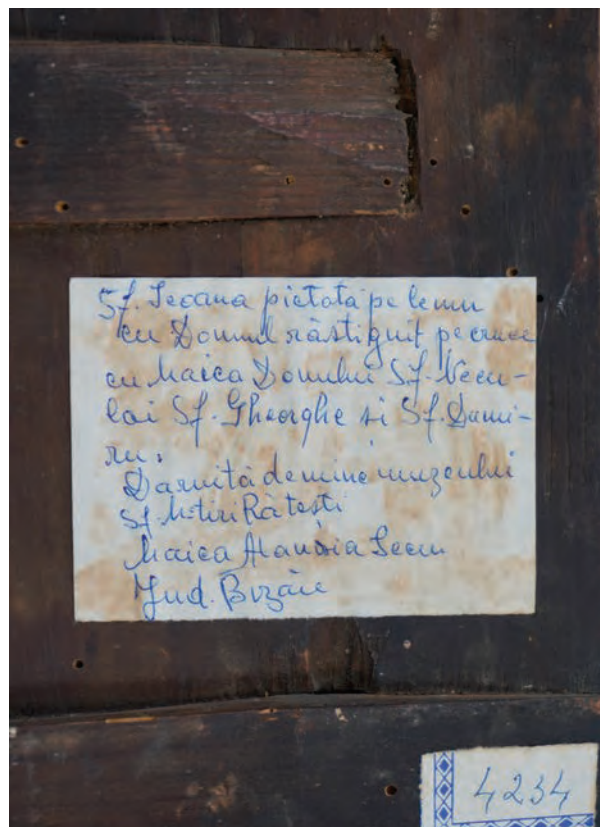 Sf. Iecana pictată pe lemn
cu Domnul răstignit pe cruce
cu Maica Domnului Sf. Necu-
lai Sf. Gheorghe si Sf. Dumi-
tru.
Daruită de mine muzeului
Sf. M-tiri Rătești
Maica Atanasia
Jud. Buzău
4234